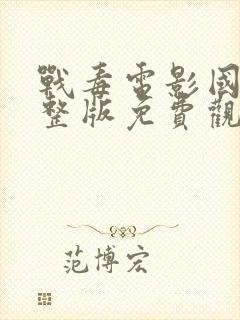 戰毒電影國
整版免費觀
范博宏